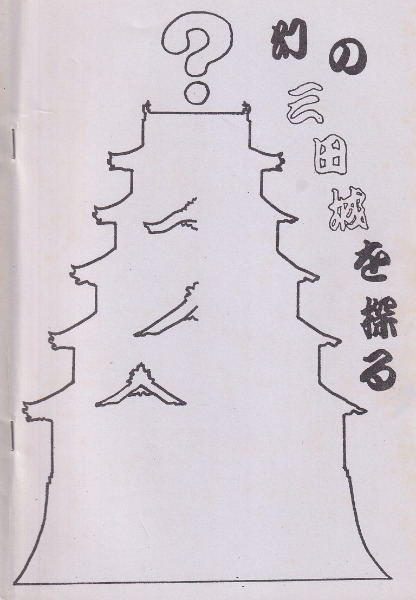 ?
幻の三田城を探る